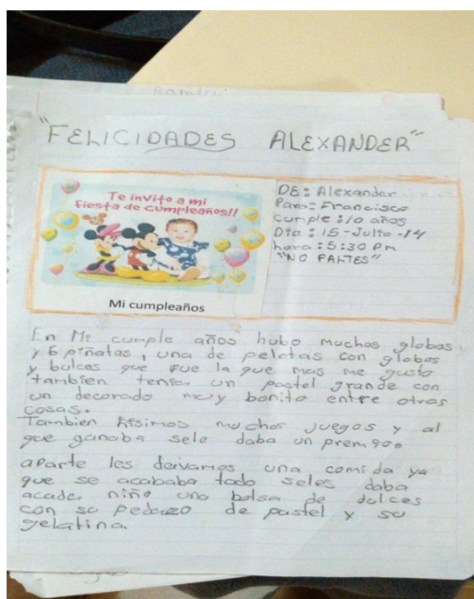 "FELICIDADES ALEXANDER"
Te invito a mi
Fiesta de cumpleaños!!
Mi cumpleaños
DE: Alexander
Para: Francisco
cumple: 10 años
Dia: 15-Julio-14
hora: 5:30 Pm
"NO FALTES"
En Mi cumple años hubo muchos globos
y 6 piñatas, una de pelotas con globos
y bulces que fue la que mas me gusto
tambien tenia un pastel grande con
un decorado muy bonito entre otras
cosas.
Tambien hisimos muchos juegos y al
que ganaba sele daba un premioo
aparte les deivamos una comida ya
que se acababa todo seles daba
acada niño una bolsa de dulces
con su pedazo de pastel y su
gelatina.